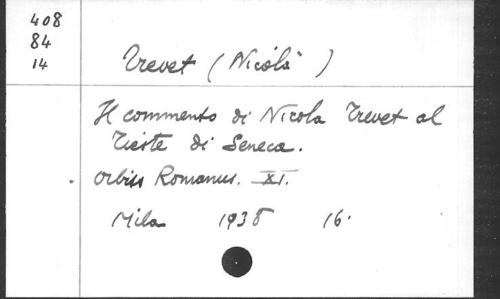 408
84
14
Trevet (Nicolà)
Il commento di Nicola Trevet al
Tieste di Seneca.
Orbis Romanus. XI.
Mila 1938 16.